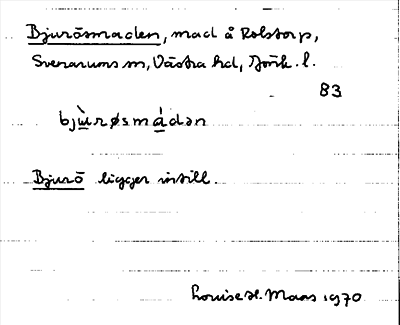 Bjurösmaden, mad å Rolstorp,
Svenarums sn, Västra hd, Jönk. l.
83
bjùrøsmádən
Bjurö ligger intill.
Louise H. Maas 1970